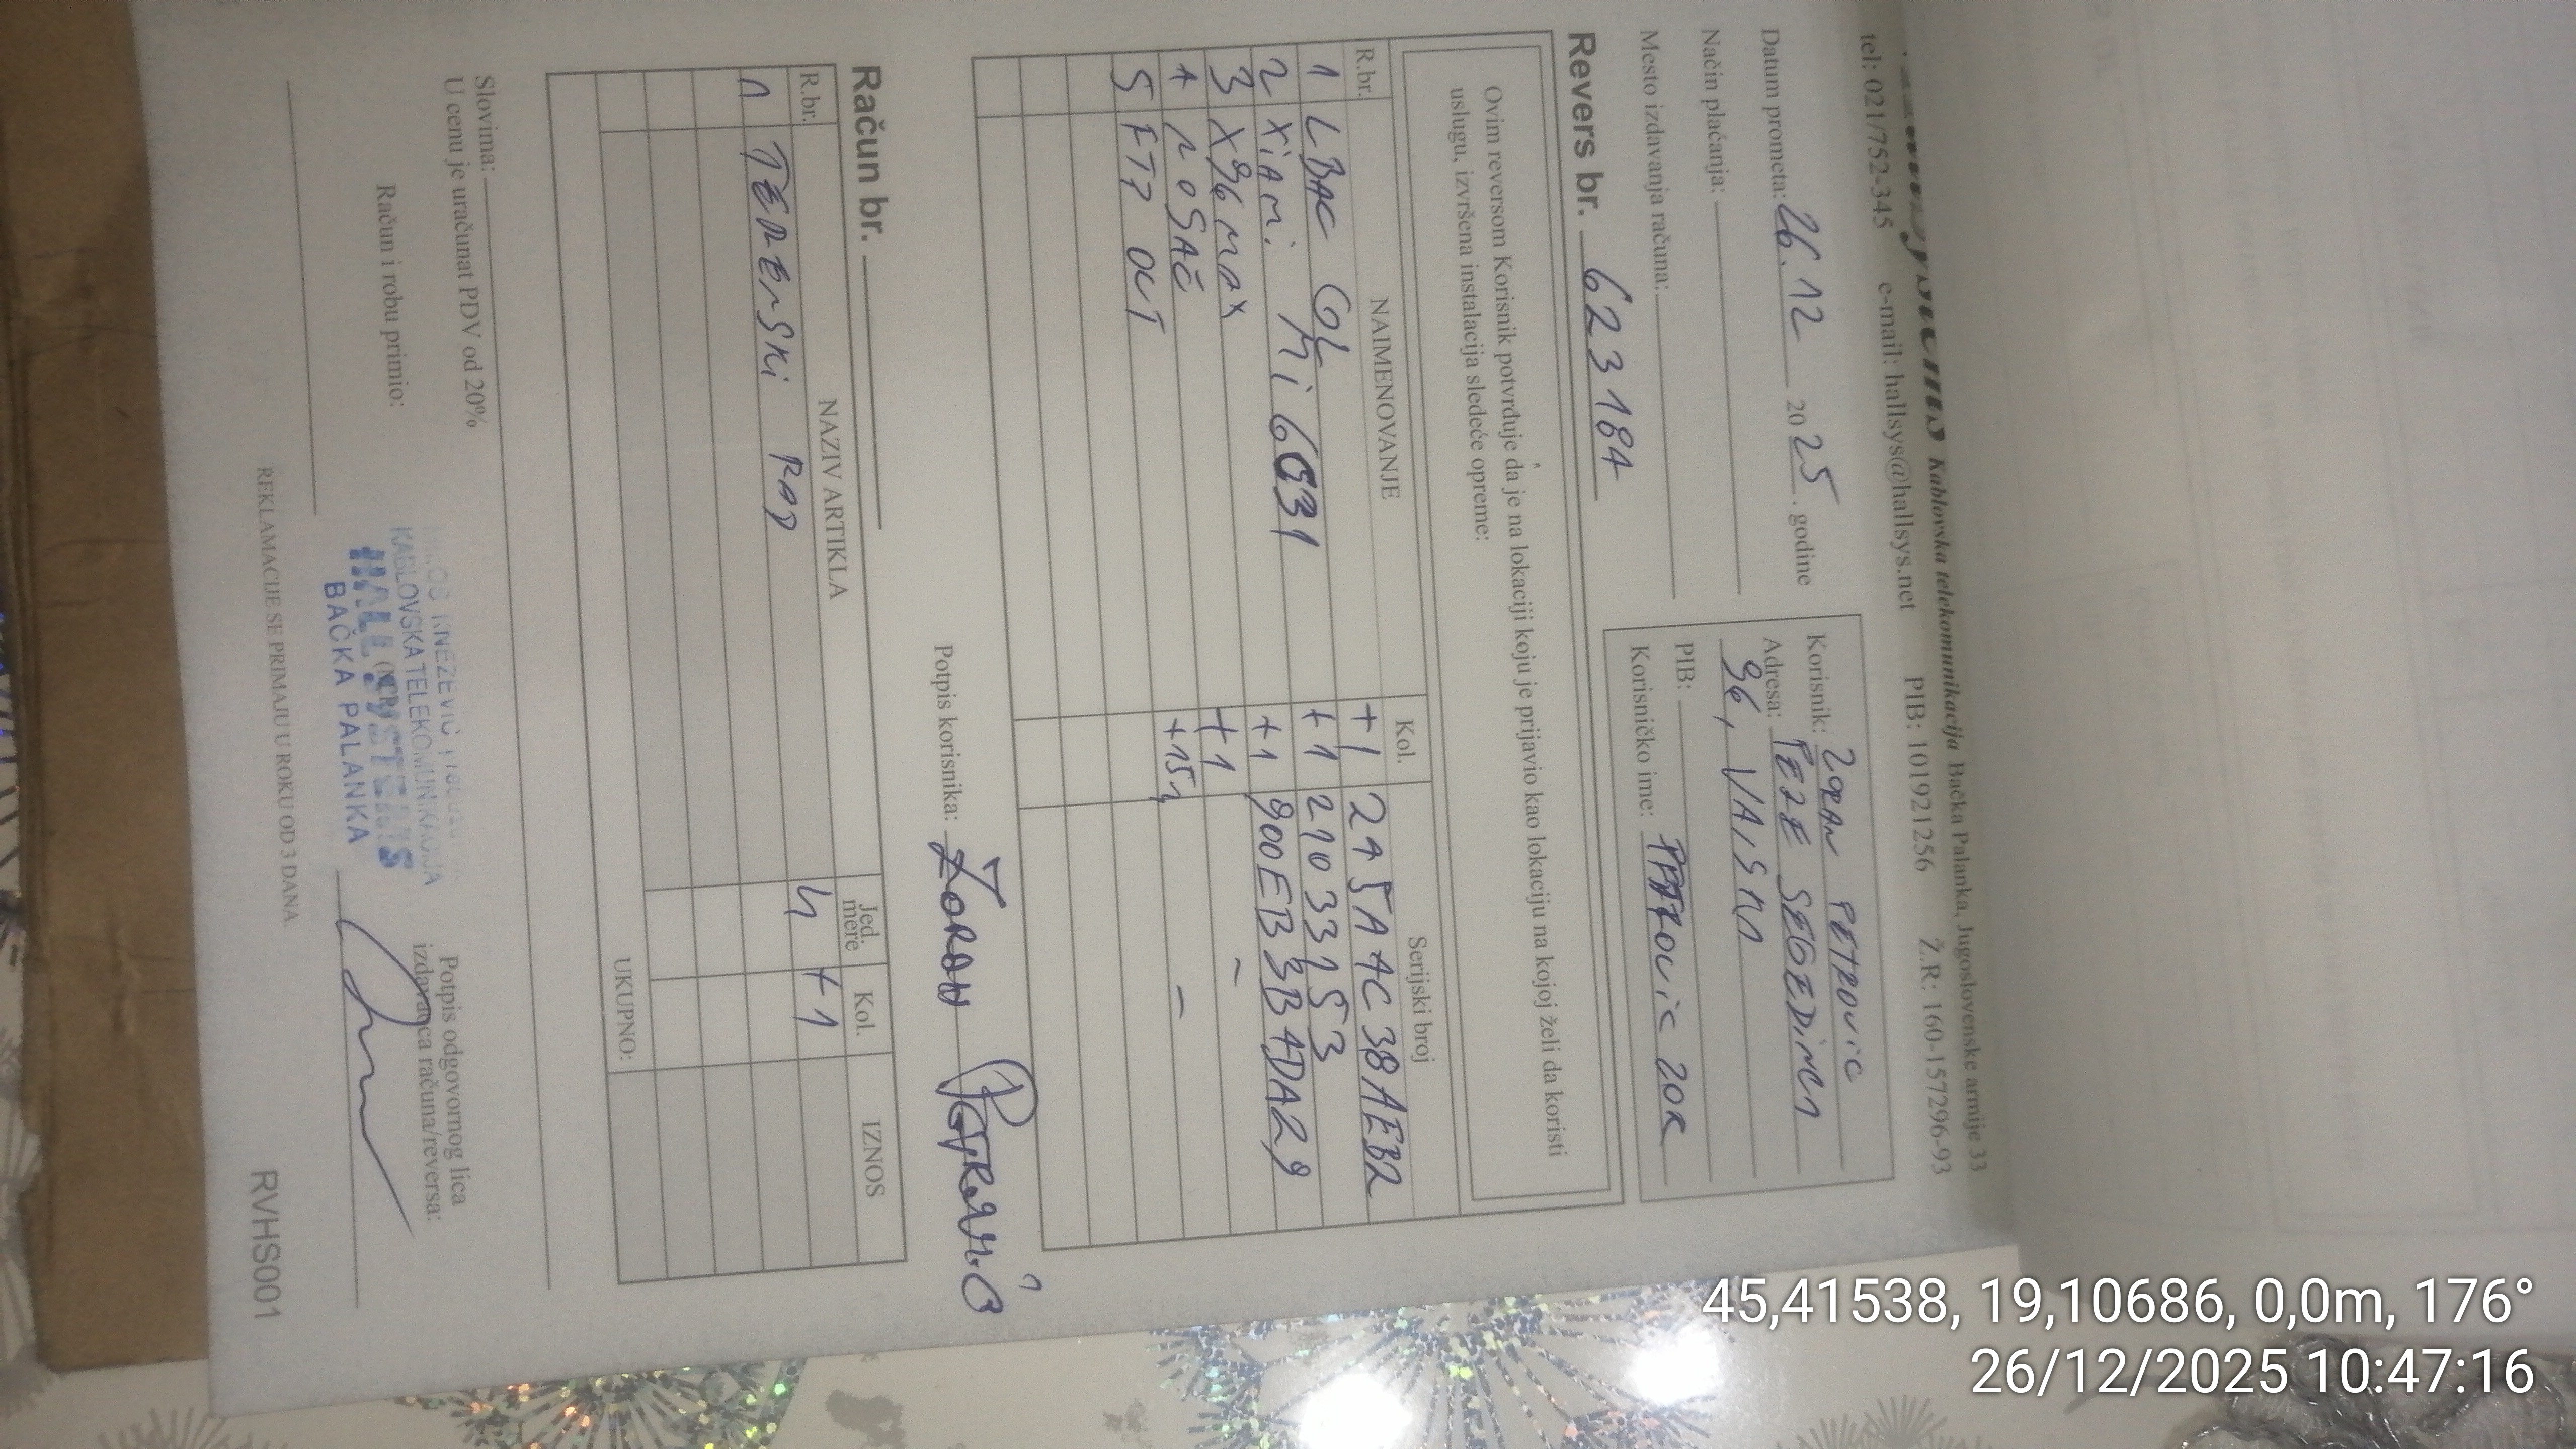 Kablovska telekomunikacija Bačka Palanka, Jugoslovenske armije 33
tel: 021/752-345 e-mail: hallsys@hallsys.net PIB: 101921256 Ž.R: 160-157296-93
Datum prometa: 26.12 2025. godine
Način plaćanja:
Mesto izdavanja računa:
Korisnik: ZORAN PETROVIC
Adresa: PEZE SEGEDINCA
36, VAJSKA
PIB:
Korisničko ime: ZOR
Revers br. 623184
Ovim reversom Korisnik potvrđuje da je na lokaciji koju je prijavio kao lokaciju na kojoj želi da koristi
uslugu, izvršena instalacija sledeće opreme:
R.br. NAIMENOVANJE Kol. Serijski broj
1 LBAC +1 245A4C38AEB2
2 XiAMi +1 21033153
3 X96MAX +1 900EB3B4DA29
4 NOSAČ +1 -
5 FTP +15 -
Potpis korisnika: ZORAN
Račun br.
R.br. NAZIV ARTIKLA Jed. mere Kol. IZNOS
1 TERENSKI RAD h +1
UKUPNO:
Slovima:
U cenu je uračunat PDV od 20%
Račun i robu primio:
KABLOVSKA TELEKOMUNIKACIJA
HALL SYSTEMS
BAČKA PALANKA
Potpis odgovornog lica
izdavaoca računa/reversa:
REKLAMACIJE SE PRIMAJU U ROKU OD 3 DANA.
RVHS001
45,41538, 19,10686, 0,0m, 176°
26/12/2025 10:47:16